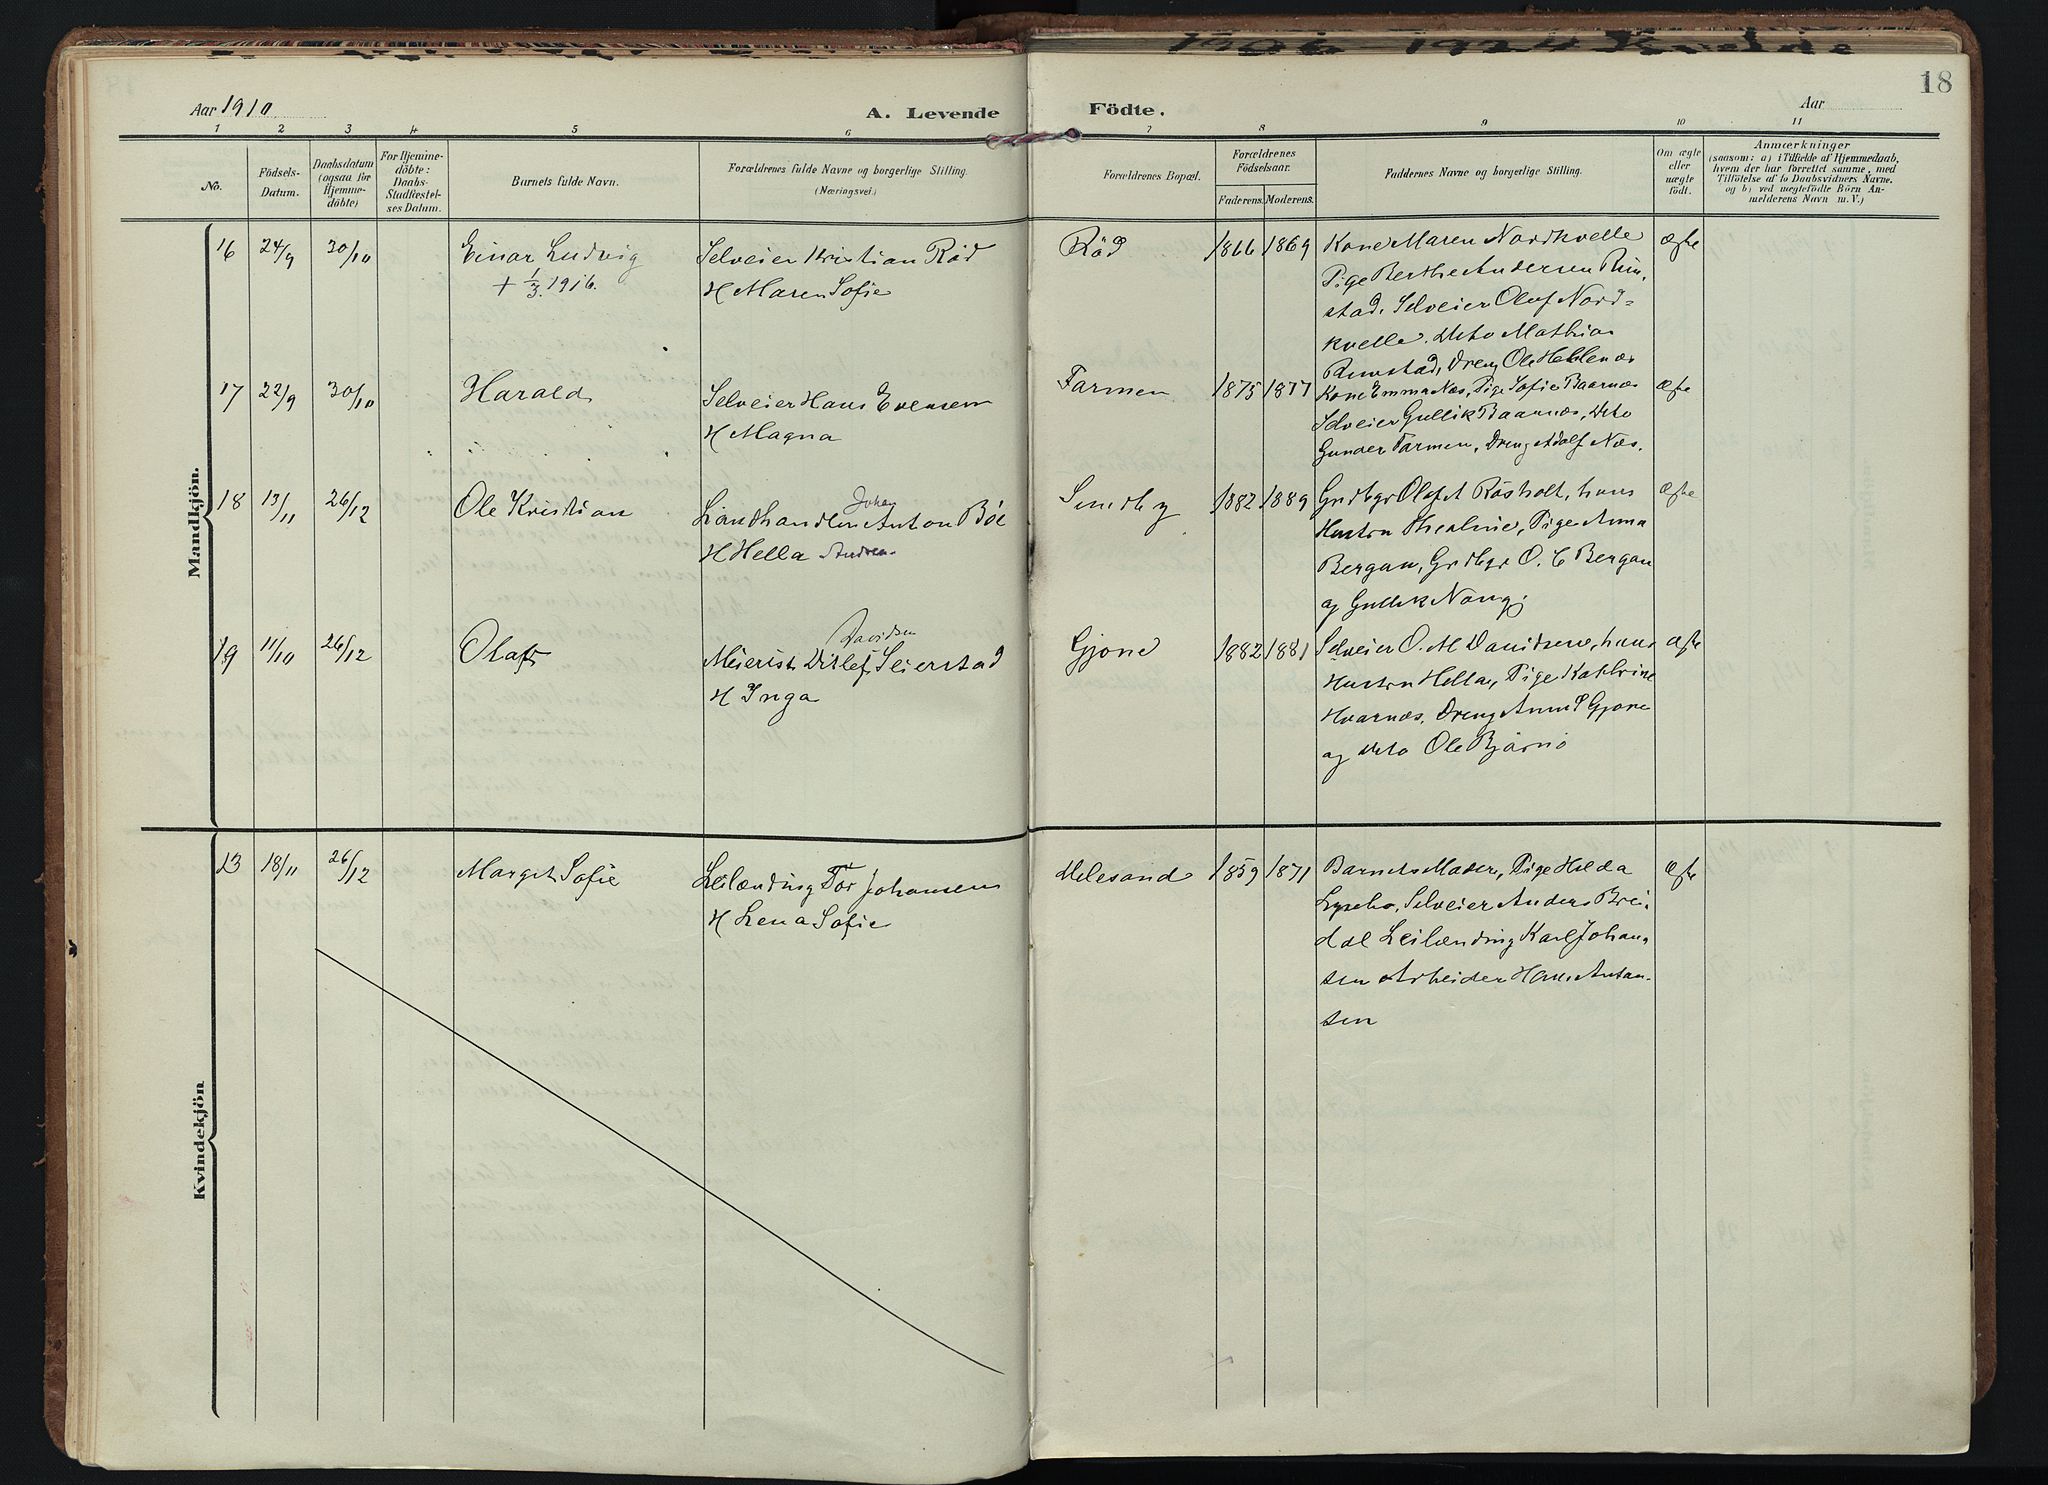 1906 1924 Kvelde
18
Aar 1910
A. Levende
Födte.
Aar
1 2 3 4 5 6 7 8 9 10 11
No.
Födsels-
Datum.
Daabsdatum
(ogsaa for
Hjemme-
döbte)
For Hjemme-
döbte:
Daabs-
Stadfæstel-
ses Datum.
Barnets fulde Navn.
Forældrenes fulde Navne og borgerlige Stilling.
(Næringsvei)
Forældrenes Bopæl.
Forældrenes
Födselsaar.
Faderens. Moderens.
Faddernes Navne og borgerlige Stilling.
Om ægte
eller
uægte
født.
Anmærkninger
(saasom: a) i Tilfælde af Hjemmedaab,
hvem der har forrettet samme, med
Tilföielse af to Daabsvidners Navne.
og b) ved uægtefödte Börn An-
melderens Navn m. V.)
Mandkjön.
16 24/9 30/10 Einar Ludvig
+ 1/3. 1916.
Selveier Kristian Röd
H Maren Sofie
Röd 1866 1869
Kone Maren Nordkvelle
Pige Berthe Andersen Rim-
stad, Selveier Olaf Nord-
kvelle. Dito Mathias
Rimstad, Dreng Ole Hellenæs
ægte
17 22/9 30/10 Harald
Selveier Hans Evensen
H Magna
Farmen 1875 1877
Kone Emma Næs, Pige Sofie Baarnæs
Selveier Gullik Baarnæs, Dito
Gunder Farmen, Dreng Adolf Næs.
ægte
18 13/11 26/12 Ole Kristian
Johan
Landhandler Anton Böe
H Hella Andrea
Smedby 1882 1889
Grdbgr Olaf A Rösholt, hans
Hustru Thealine, Pige Anna
Bergan, Grdbgr O. C Bergan
og Gullik Naug.
ægte
19 11/10 26/12 Olaf
Davidsen
Meierist Ditlef Seierstad
H Inga
Gjone 1882 1881
Selveier O. M Davidsen, hans
Hustru Hella, Pige Kathrine
Hvarnæs, Dreng Anun P Gjone
og Dito Ole Bjørnø
ægte
Kvindekjön
13 18/11 26/12 Margit Sofie
Leilænding Tor Johansen
H Lena Sofie
Melesand 1859 1871
Barnets Moder, Pige Hilda
Lysebo, Selveier Anders Brei-
dal Leilænding Karl Johan-
sen Arbeider Hans Antan-
sen
ægte